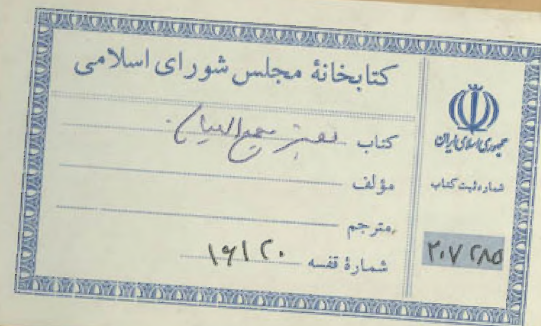 کتابخانهٔ مجلس شورای اسلامی
کتاب تفسیر مجمع البیان
مؤلف
مترجم
شمارهٔ قفسه ۱۶۱۲۰
جمهوری اسلامی ایران
شماره ثبت کتاب
۲۰۷۲۸۵